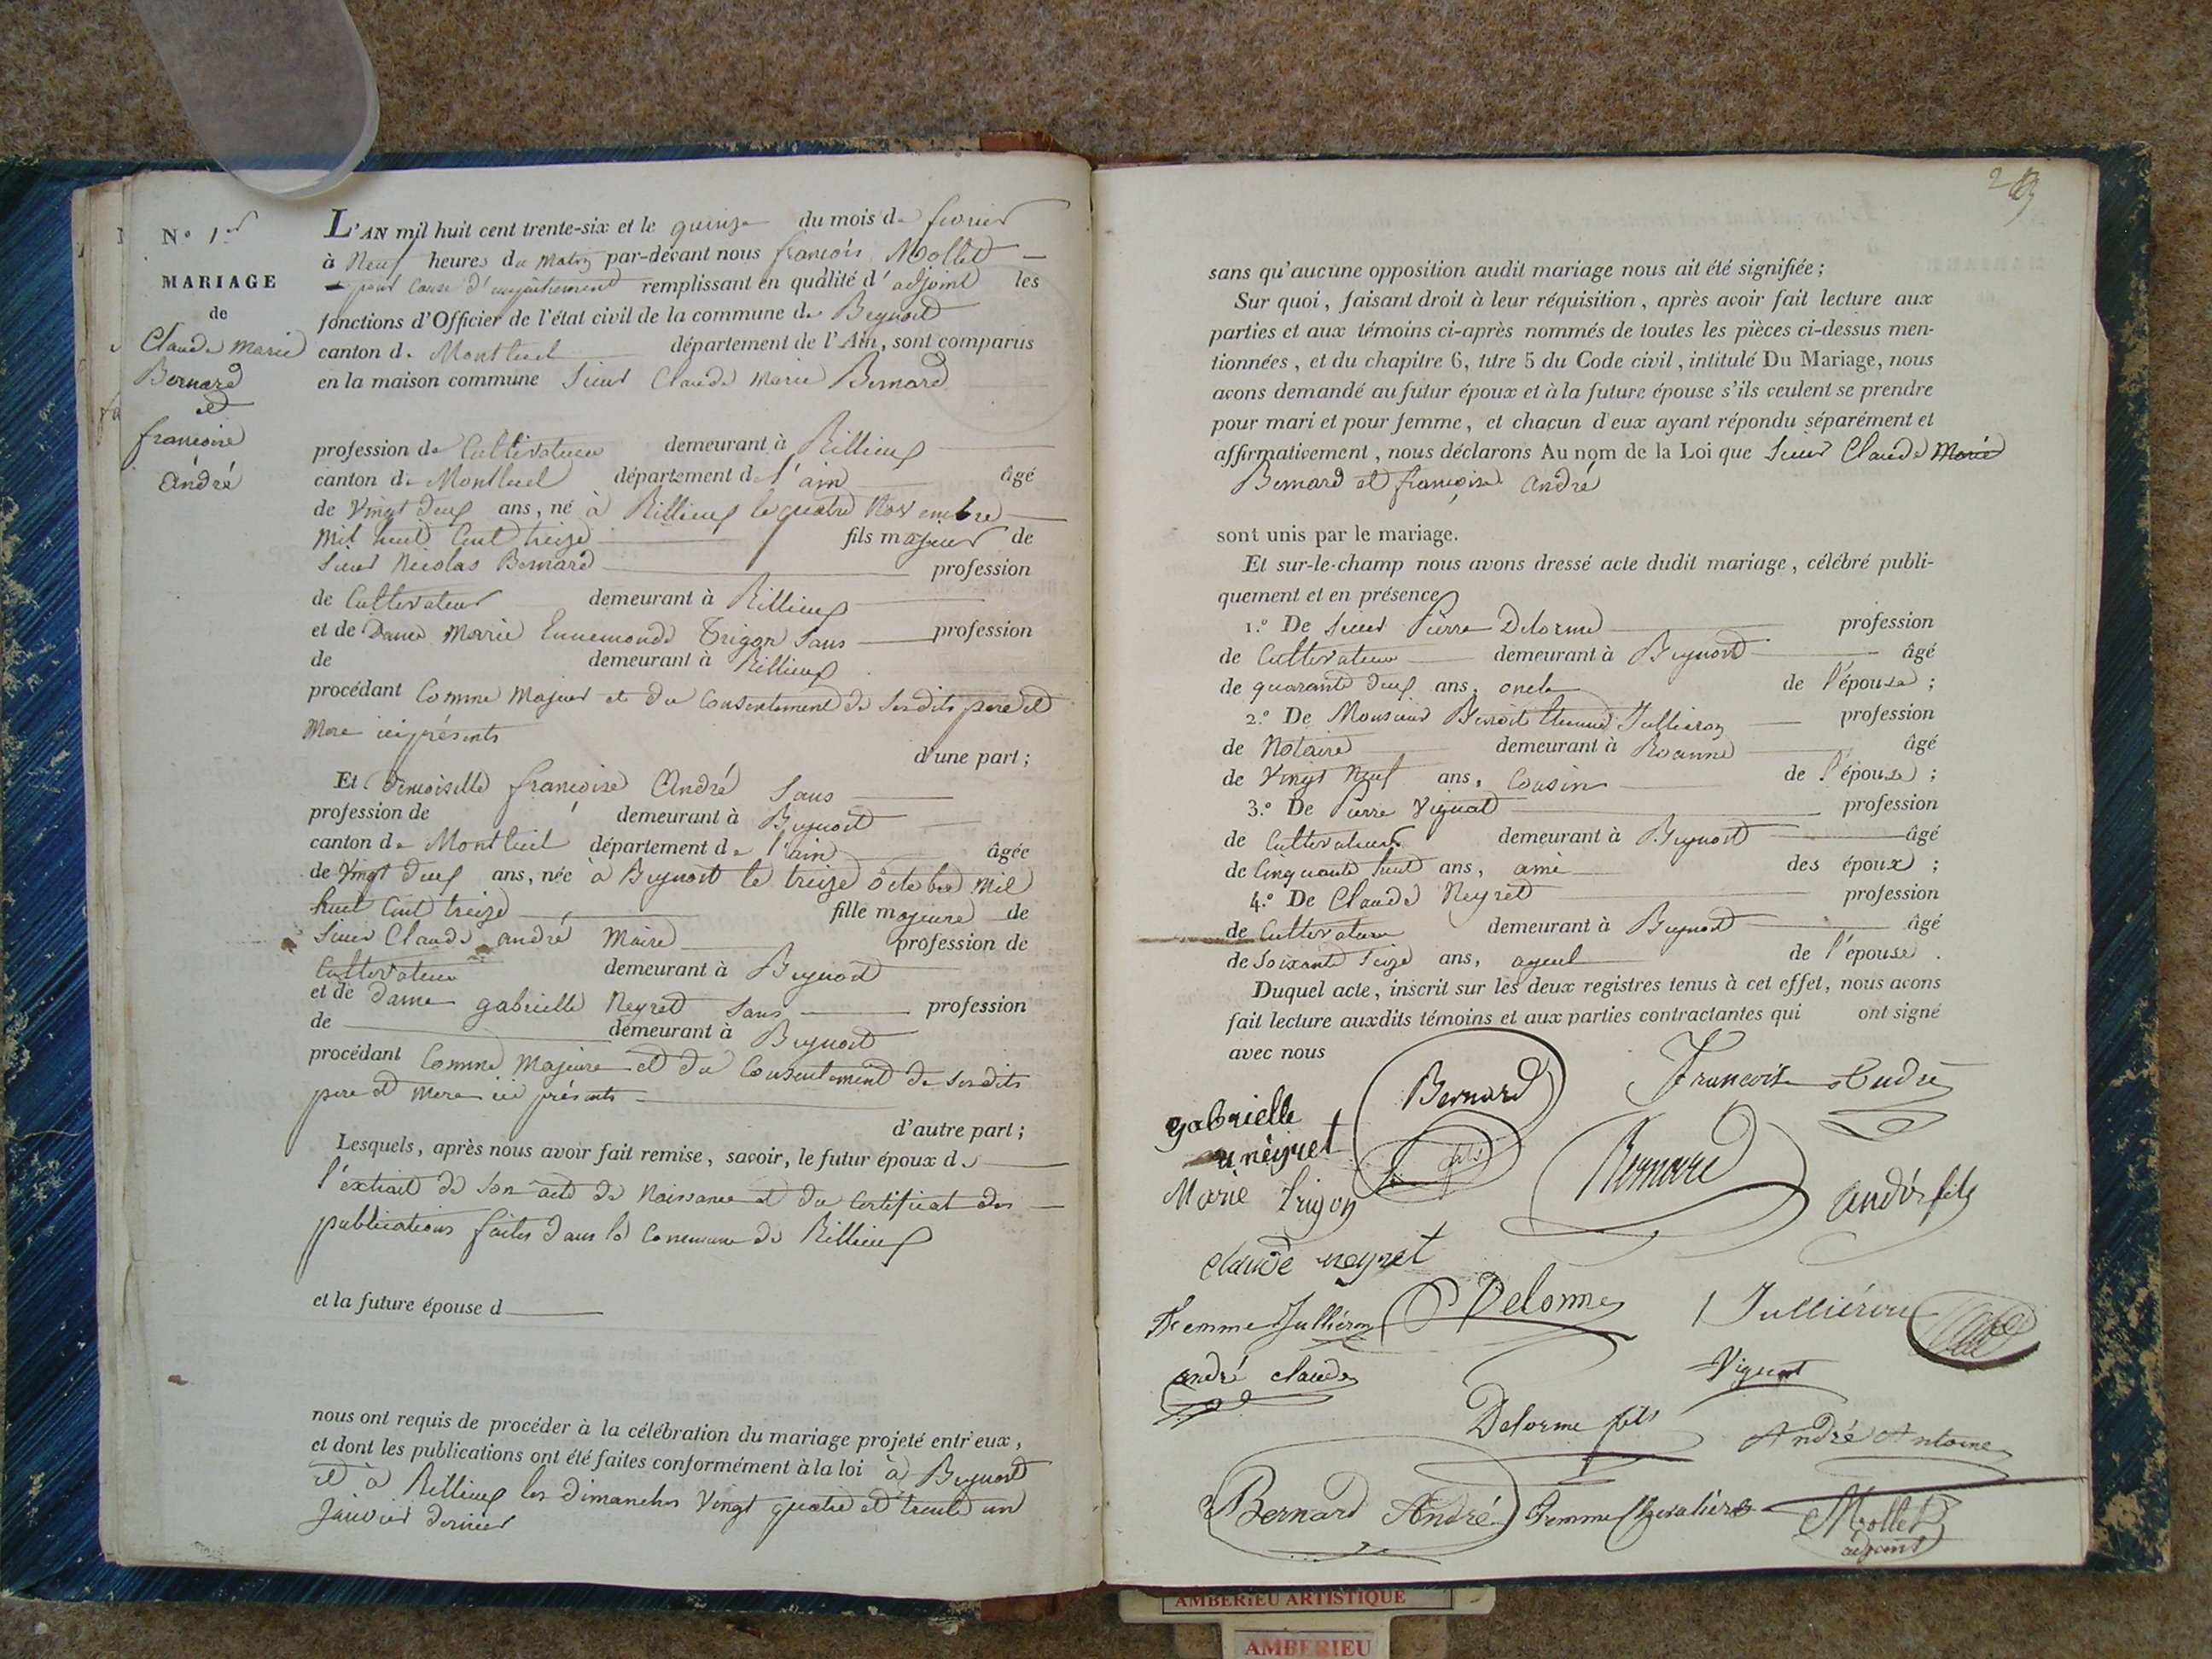 N° 1er
MARIAGE
de
Claude Marie
Bernard
et
françoise
André
L'AN mil huit cent trente-six et le quinze du mois de fevrier
à Neuf heures du Matin par-devant nous françois Mollet
pour Cause d'empêchement remplissant en qualité d'adjoint les
fonctions d'Officier de l'état civil de la commune de Beynost
canton de Montluel département de l'Ain, sont comparus
en la maison commune Sieur Claude Marie Bernard
profession de Cultivateur demeurant à Rillieux
canton de Montluel département de l'ain âgé
de Vingt deux ans, né à Rillieux le quatre Novembre
Mil huit Cent treize fils majeur de
Sieur Nicolas Bernard profession
de Cultivateur demeurant à Rillieux
et de Dame Marie Ennemonde Trigon Sans profession
de demeurant à Rillieux
procédant Comme Majeur et du Consentement de Sesdits pere et
Mere ici présents
d'une part ;
Et Demoiselle françoise André Sans
profession de demeurant à Beynost
canton de Montluel département de l'ain âgée
de Vingt deux ans, née à Beynost le treize Octobre Mil
huit Cent treize fille majeure de
Sieur Claude andré Maire profession de
Cultivateur demeurant à Beynost
et de Dame gabrielle Neyret Sans profession
de demeurant à Beynost
procédant Comme Majeure et du Consentement de Sesdits
pere et Mere ici présents
d'autre part ;
Lesquels, après nous avoir fait remise, savoir, le futur époux de
l'extrait de Son acte de Naissance et du Certificat des
publications faites dans la Commune de Rillieux
et la future épouse d
nous ont requis de procéder à la célébration du mariage projeté entr'eux,
et dont les publications ont été faites conformément à la loi à Beynost
et à Rillieux les dimanches Vingt quatre et trente un
Janvier dernier
2
sans qu'aucune opposition audit mariage nous ait été signifiée ;
Sur quoi, faisant droit à leur réquisition, après avoir fait lecture aux
parties et aux témoins ci-après nommés de toutes les pièces ci-dessus men-
tionnées, et du chapitre 6, titre 5 du Code civil, intitulé Du Mariage, nous
avons demandé au futur époux et à la future épouse s'ils veulent se prendre
pour mari et pour femme, et chacun d'eux ayant répondu séparément et
affirmativement, nous déclarons Au nom de la Loi que Sieur Claude Marie
Bernard et françoise André
sont unis par le mariage.
Et sur-le-champ nous avons dressé acte dudit mariage, célébré publi-
quement et en présence
1.° De Sieur Pierre Delorme profession
de Cultivateur demeurant à Beynost âgé
de quarante deux ans, oncle de l'épouse ;
2.° De Monsieur Benoit Etienne Jullieron profession
de Notaire demeurant à Roanne âgé
de Vingt Neuf ans, Cousin de l'épouse ;
3.° De Pierre Vignat profession
de Cultivateur demeurant à Beynost âgé
de Cinquante huit ans, ami des époux ;
4.° De Claude Neyret profession
de Cultivateur demeurant à Beynost âgé
de Soixante Seize ans, ayeul de l'épouse.
Duquel acte, inscrit sur les deux registres tenus à cet effet, nous avons
fait lecture auxdits témoins et aux parties contractantes qui ont signé
avec nous
Bernard fils
Francoise André
gabrielle
neyret
Bernard
Marie Trigon
André fils
claude neyret
Femme Jullieron
Delorme
Julliéron
andré claude
Vignat
Delorme fils
André Antoine
Bernard André
Femme Chevalier
Mollet
adjoint
AMBERIEU ARTISTIQUE
AMBERIEU